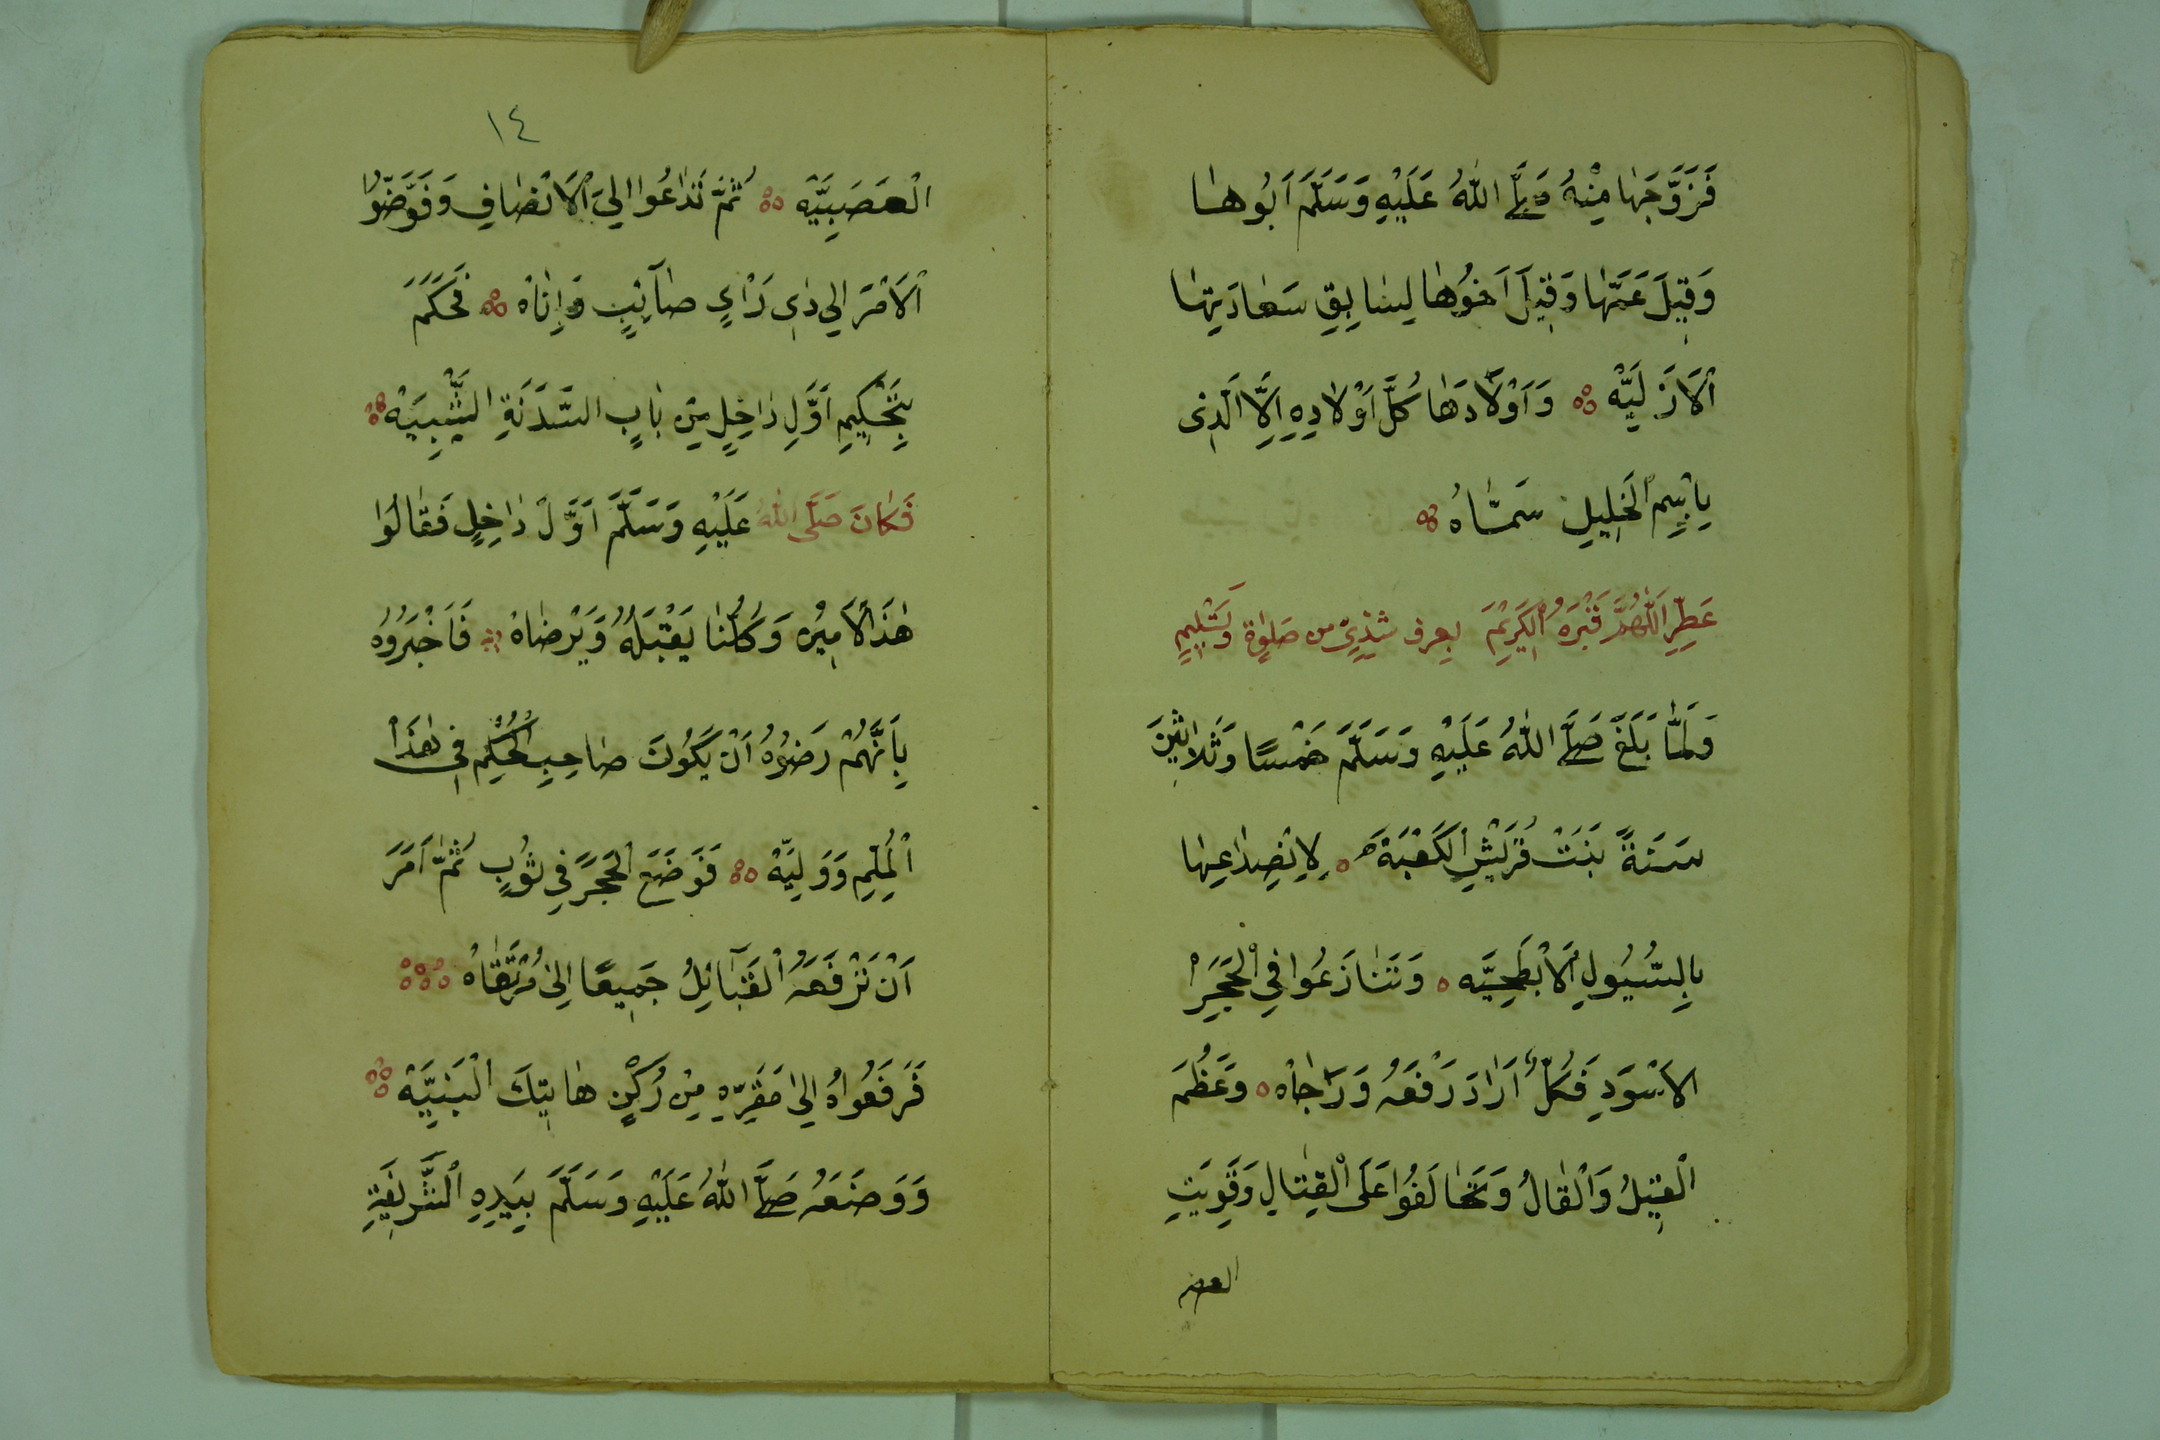 فَزَوَّجَهٰا مِنْهُ صَلَّى اللّٰهُ عَلَيْهِ وَسَلَّمَ اَبُوهٰا
وَقِيلَ عَمُّهٰا وَقِيلَ اَخُوهٰا لِسٰابِقِ سَعٰادَتِهٰا
اْلاَزَلِيَّهْ وَاَوْلَادَهٰا كُلَّ اَوْلادِهِ اِلَّا الَّذِى
بِاْسِمِ الْخَلِيلِ سَمّٰاهُ
عَطِّرِ اللّٰهُمَّ قَبْرَهُ الْكَرِيْمَ بعرف شذيّ من صلوة وَتَسْلِيمٍ
وَلَمّٰا بَلَغَ صَلَّى اللّٰهُ عَلَيْهِ وَسَلَّمَ خَمْسًا وَثَلاثِينَ
سَنَةً بَنَتْ قُرَيْشٌ الْكَعْبَةَ لِاِنْصِدٰاعِهٰا
بِالسُّيُولِ اْلاَبْطَحِيَّه وَتَنٰازَعُوا فِي الْحَجَرِ
الاَسْوَدِ فَكُلٌّ اَرٰادَ رَفْعَهُ وَرَجٰاهْ وَعَظُمَ
الْقِيلُ وَالْقٰالُ وَتَحٰالَفُوا عَلَى الْقِتٰالِ وَقَوِيَتِ
العصـ
١٤
الْعَصَبِيَّه ثُمَّ تَدٰاعُوا اِلَي اْلاَنْصٰافِ وَفَوَّضُوا
اْلاَمْرَ اِلي ذِى رَاْيٍ صٰآئِبٍ وَاِنٰاهْ فَحَكَمَ
بِتَحْكِيمِ اَوَّلِ دٰاخِلٍ مِنْ بٰابِ السَّدَنَةِ الشَّيْبِيَهْ
فَكٰانَ صَلَّى اللّٰهُ عَلَيْهِ وَسَلَّمَ اَوَّلَ دٰاخِلٍ فَقٰالُوا
هٰذَا الْاَمِيْرُ وَكُلُّنٰا يَقْبَلُهُ وَيَرْضٰاهْ فَاَخْبَرُوُه
بِاَنَّهُمْ رَضُوْهُ اَنْ يَكُونَ صٰاحِبَ الْحُكْمِ فِى هٰذَا
الْمُلِمِّ وَوَلِيَّهْ فَوَضَعَ الْحَجَرَ فِى ثَوْبٍ ثُمَّ اَمَرَ
اَنْ تَرْفَعَهُ الْقَبٰٓائِلُ جَمِيعًا اِلىٰ مُرْتَقٰاهْ
فَرَفَعُواهُ اِلىٰ مَقَرِّهِ مِنْ رُكْنِ هٰاتِيْكَ الْبَنِيَّهْ
وَوَضَعَهُ صَلَّى اللّٰهُ عَلَيْهِ وَسَلَّمَ بِيَدِهِ الشَّرِيْفَةِ